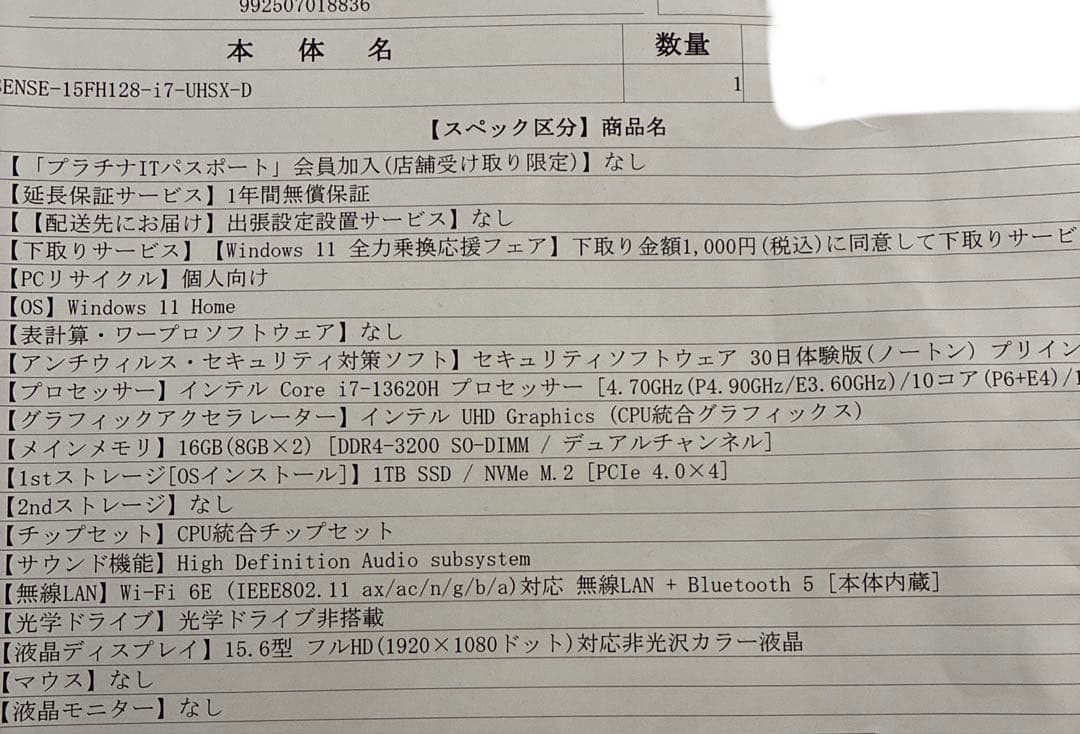 992507018836
本 体 名 数量
ENSE-15FH128-i7-UHSX-D 1
【スペック区分】商品名
【「プラチナITパスポート」会員加入(店舗受け取り限定)】なし
【延長保証サービス】1年間無償保証
【【配送先にお届け】出張設定設置サービス】なし
【下取りサービス】【Windows 11 全力乗換応援フェア】下取り金額1,000円(税込)に同意して下取りサービ
【PCリサイクル】個人向け
【OS】Windows 11 Home
【表計算・ワープロソフトウェア】なし
【アンチウィルス・セキュリティ対策ソフト】セキュリティソフトウェア 30日体験版(ノートン) プリイン
【プロセッサー】インテル Core i7-13620H プロセッサー [4.70GHz(P4.90GHz/E3.60GHz)/10コア(P6+E4)/1
【グラフィックアクセラレーター】インテル UHD Graphics (CPU統合グラフィックス)
【メインメモリ】16GB(8GB×2) [DDR4-3200 SO-DIMM / デュアルチャンネル]
【1stストレージ[OSインストール]】1TB SSD / NVMe M.2 [PCIe 4.0×4]
【2ndストレージ】なし
【チップセット】CPU統合チップセット
【サウンド機能】High Definition Audio subsystem
【無線LAN】Wi-Fi 6E (IEEE802.11 ax/ac/n/g/b/a)対応 無線LAN + Bluetooth 5 [本体内蔵]
【光学ドライブ】光学ドライブ非搭載
【液晶ディスプレイ】15.6型 フルHD(1920×1080ドット)対応非光沢カラー液晶
【マウス】なし
【液晶モニター】なし